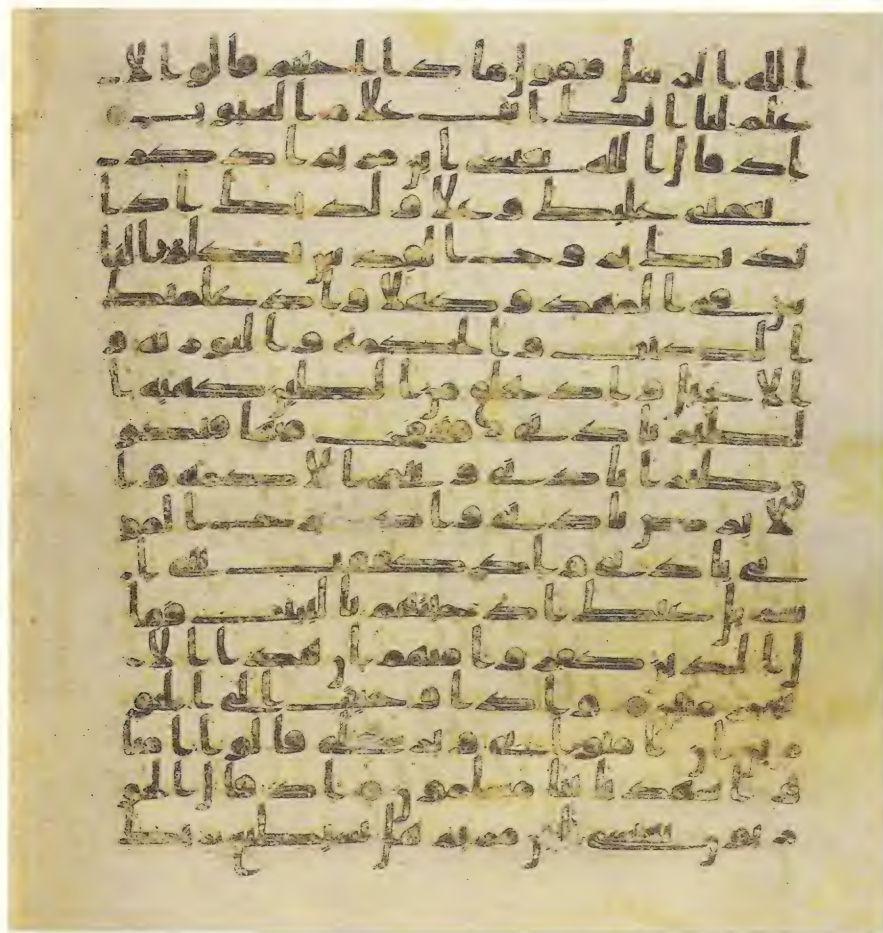 الله الرسل فيقول ماذا اجبتم قالوا لا
علم لنا انك انت علام الغيوب
اذ قال الله يعيسى ابن مريم اذكر
نعمتي عليك وعلى ولدتك اذ ا
يدتك بروح القدس تكلم النا
س في المهد وكهلا واذ علمتك
الكتب والحكمة والتورية و
الانجيل واذ تخلق من الطين كهية ا
لطير باذني فتنفخ فيها فتكو
ن طيرا باذني وتبرى الاكمه وا
لابرص باذني واذ تخرج المو
تى باذني واذ كففت بني ا
سريل عنك اذ جيتهم بالبينت فقا
ل الذين كفروا منهم ان هذا الا
سحر مبين واذ اوحيت الى الحو
ارين ان امنوا بي وبرسولي قالوا امنا
واشهد باننا مسلمون اذ قال الحو
اريون يعيسى ابن مريم هل يستطيع ربك